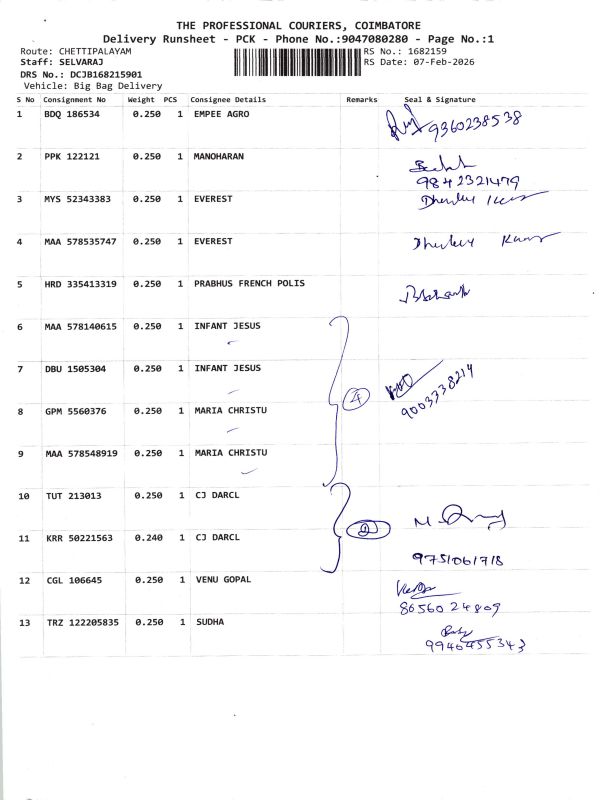 THE PROFESSIONAL COURIERS, COIMBATORE
Delivery Runsheet - PCK - Phone No.:9047080280 - Page No.:1
Route: CHETTIPALAYAM RS No.: 1682159
Staff: SELVARAJ RS Date: 07-Feb-2026
DRS No.: DCJB168215901
Vehicle: Big Bag Delivery
S No Consignment No Weight PCS Consignee Details Remarks Seal & Signature
1 BDQ 186534 0.250 1 EMPEE AGRO 9360238538
2 PPK 122121 0.250 1 MANOHARAN
9842321479
3 MYS 52343383 0.250 1 EVEREST
4 MAA 578535747 0.250 1 EVEREST
5 HRD 335413319 0.250 1 PRABHUS FRENCH POLIS
6 MAA 578140615 0.250 1 INFANT JESUS
7 DBU 1505304 0.250 1 INFANT JESUS
4 9003338214
8 GPM 5560376 0.250 1 MARIA CHRISTU
9 MAA 578548919 0.250 1 MARIA CHRISTU
10 TUT 213013 0.250 1 CJ DARCL
2
11 KRR 50221563 0.240 1 CJ DARCL
9751061718
12 CGL 106645 0.250 1 VENU GOPAL
8656024809
13 TRZ 122205835 0.250 1 SUDHA
9940455343